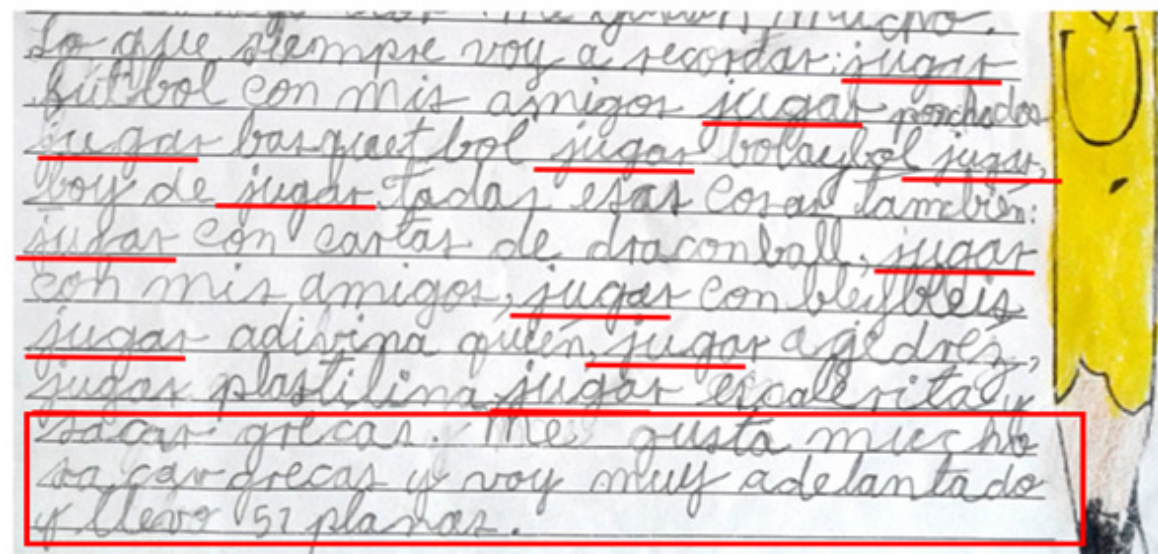 me gustan mucho.
Lo que siempre voy a recordar: jugar
fútbol con mis amigos jugar ponchados
jugar basquetbol jugar bolaybol jugar,
boy de jugar todas esas cosas también:
jugar con cartas de draconball, jugar
con mis amigos, jugar con bleybleis
jugar adivina quién, jugar agedrez,
jugar plastilina, jugar escalerita y
sacar grecas. Me gusta mucho
sacar grecas y voy muy adelantado
y llevo 51 planas.